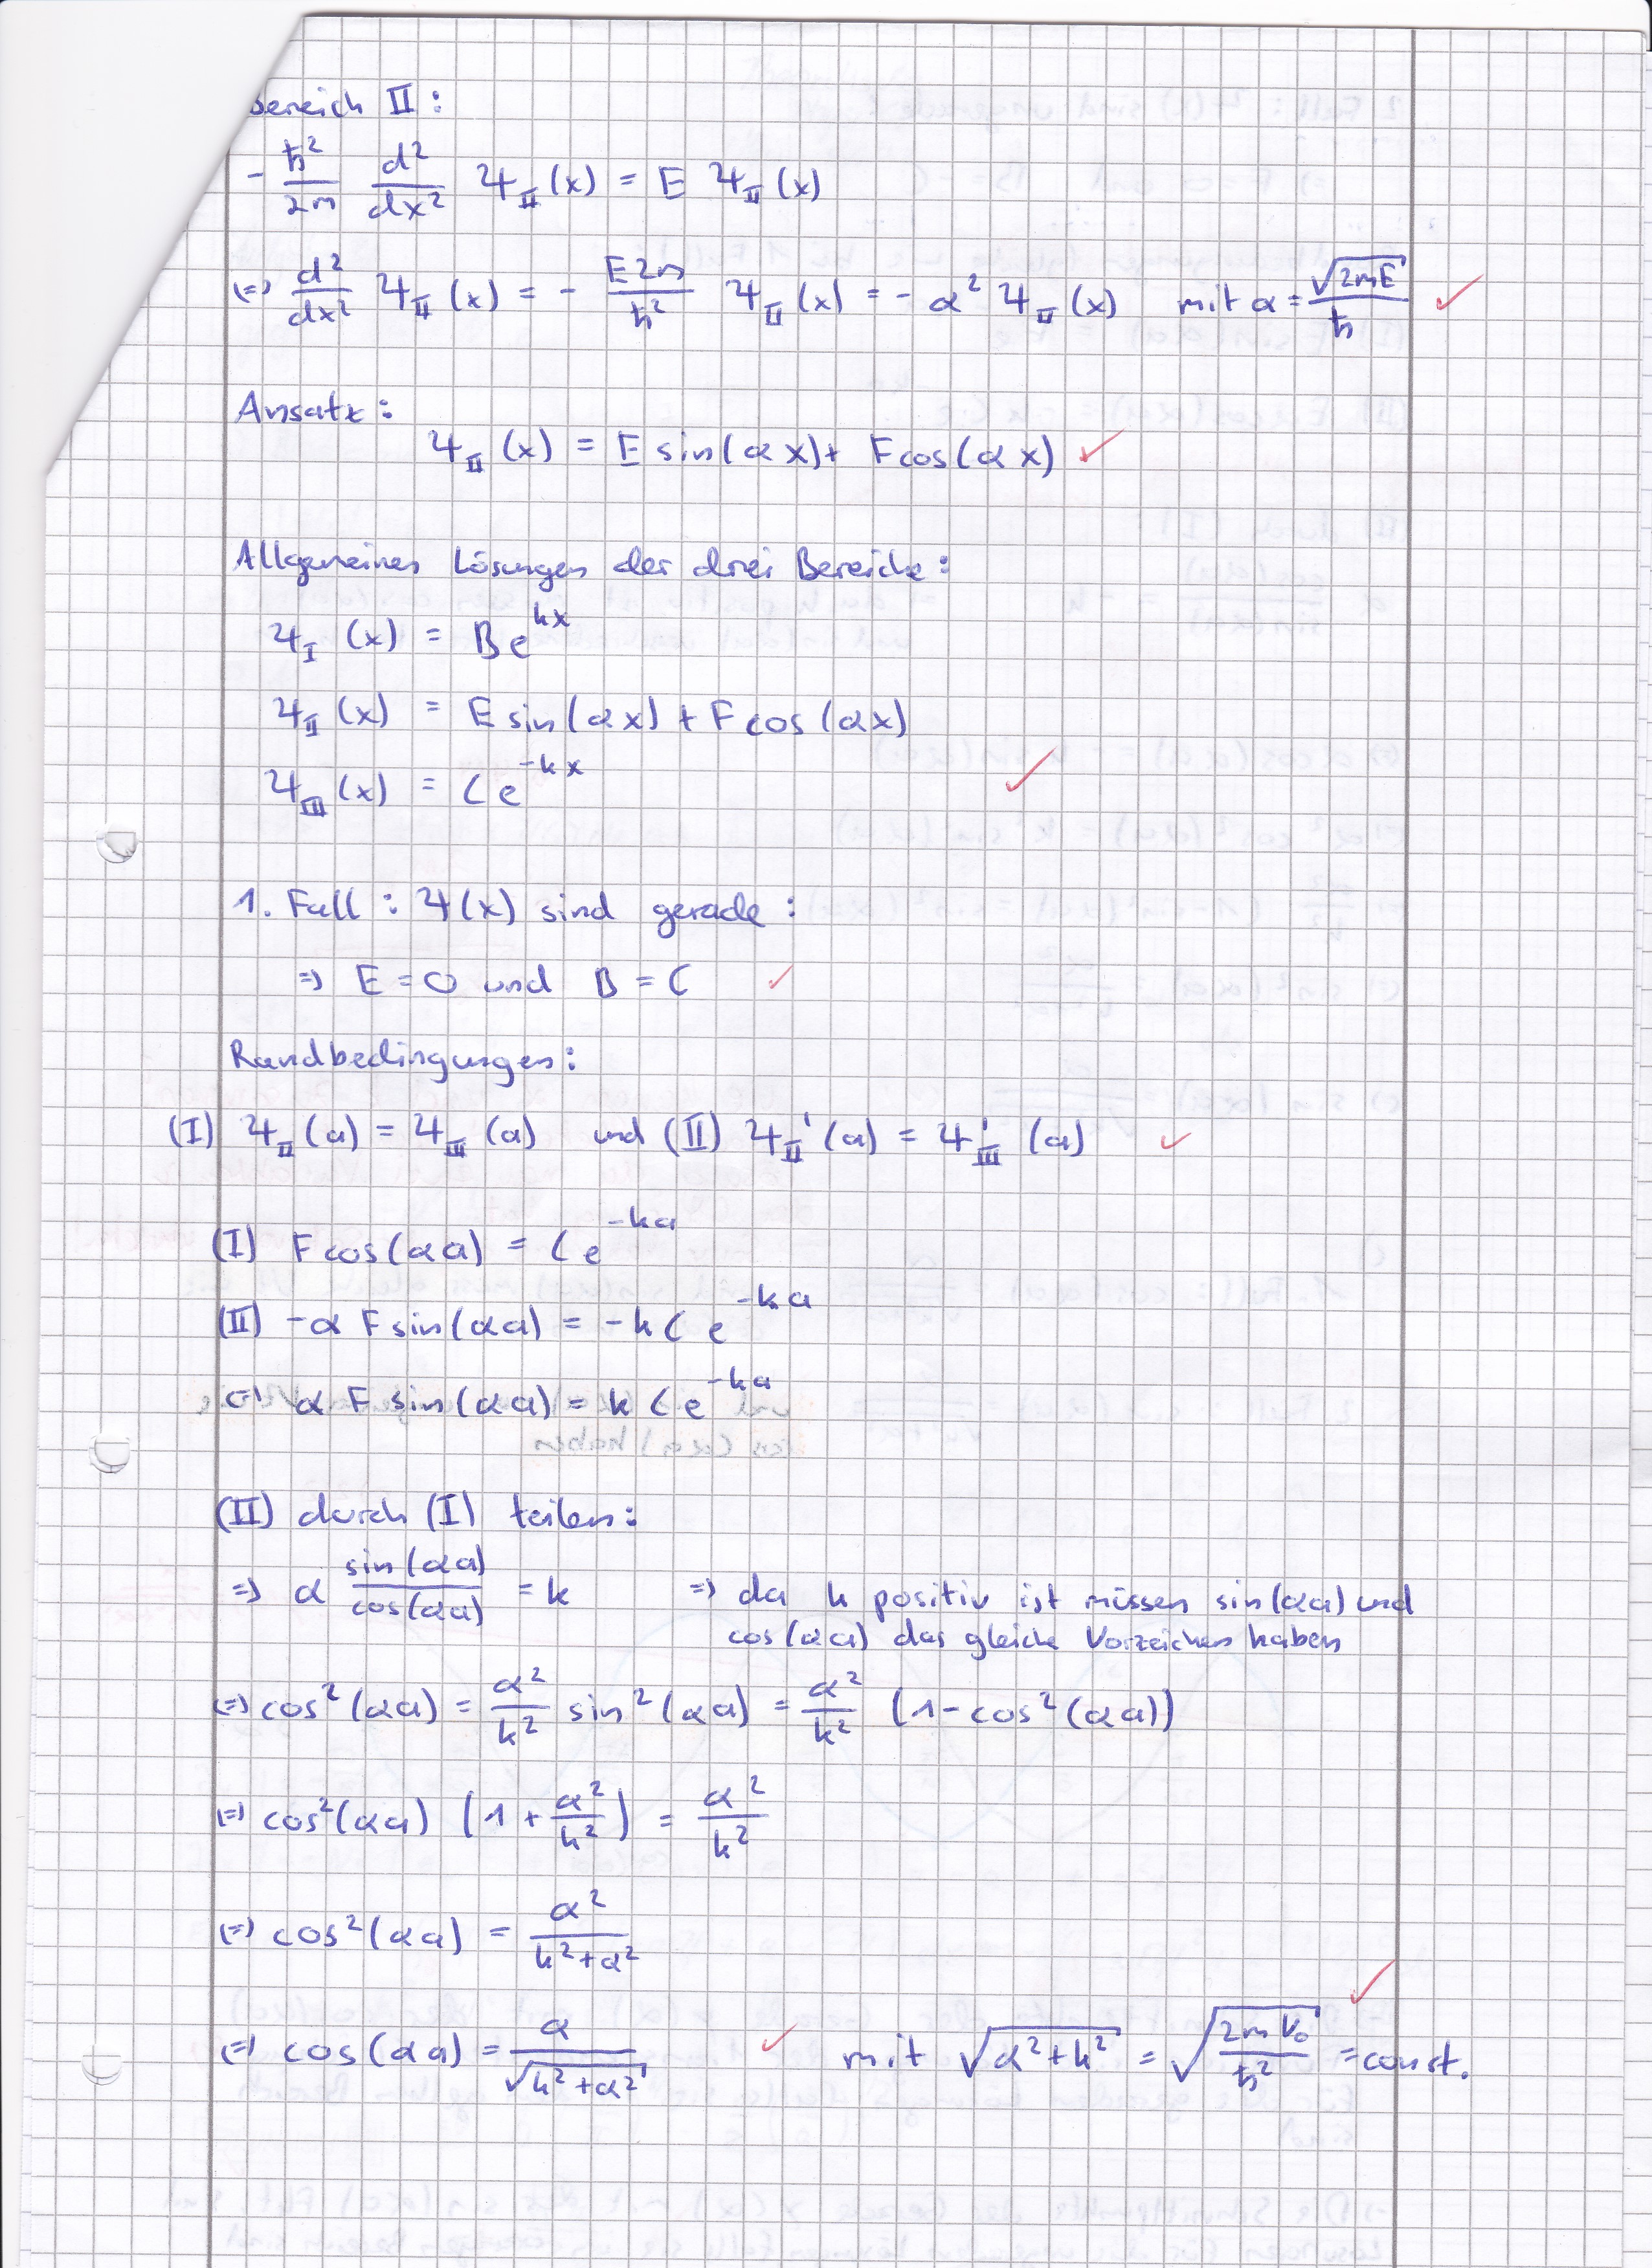 Bereich II:
- ħ²/2m d²/dx² Ψ_II(x) = E Ψ_II(x)
(=) d²/dx² Ψ_II(x) = - E2m/ħ² Ψ_II(x) = - α² Ψ_II(x) mit α = √(2mE)/ħ
Ansatz:
Ψ_II(x) = E sin(αx) + F cos(αx)
Allgemeinen Lösungen der drei Bereiche:
Ψ_I(x) = B e^{kx}
Ψ_II(x) = E sin(αx) + F cos(αx)
Ψ_III(x) = C e^{-kx}
1. Fall: Ψ(x) sind gerade:
=) E = 0 und B = C
Randbedingungen:
(I) Ψ_II(a) = Ψ_III(a) und (II) Ψ_II'(a) = Ψ_III'(a)
(I) F cos(αa) = C e^{-ka}
(II) -α F sin(αa) = -k C e^{-ka}
(=) α F sin(αa) = k C e^{-ka}
(II) durch (I) teilen:
=) α sin(αa)/cos(αa) = k =) da k positiv ist müssen sin(αa) und
cos(αa) das gleiche Vorzeichen haben
(=) cos²(αa) = α²/k² sin²(αa) = α²/k² (1 - cos²(αa))
(=) cos²(αa) (1 + α²/k²) = α²/k²
(=) cos²(αa) = α²/(k²+α²)
(=) cos(αa) = α/√(k²+α²) mit √(α²+k²) = √(2mV₀/ħ²) = const.